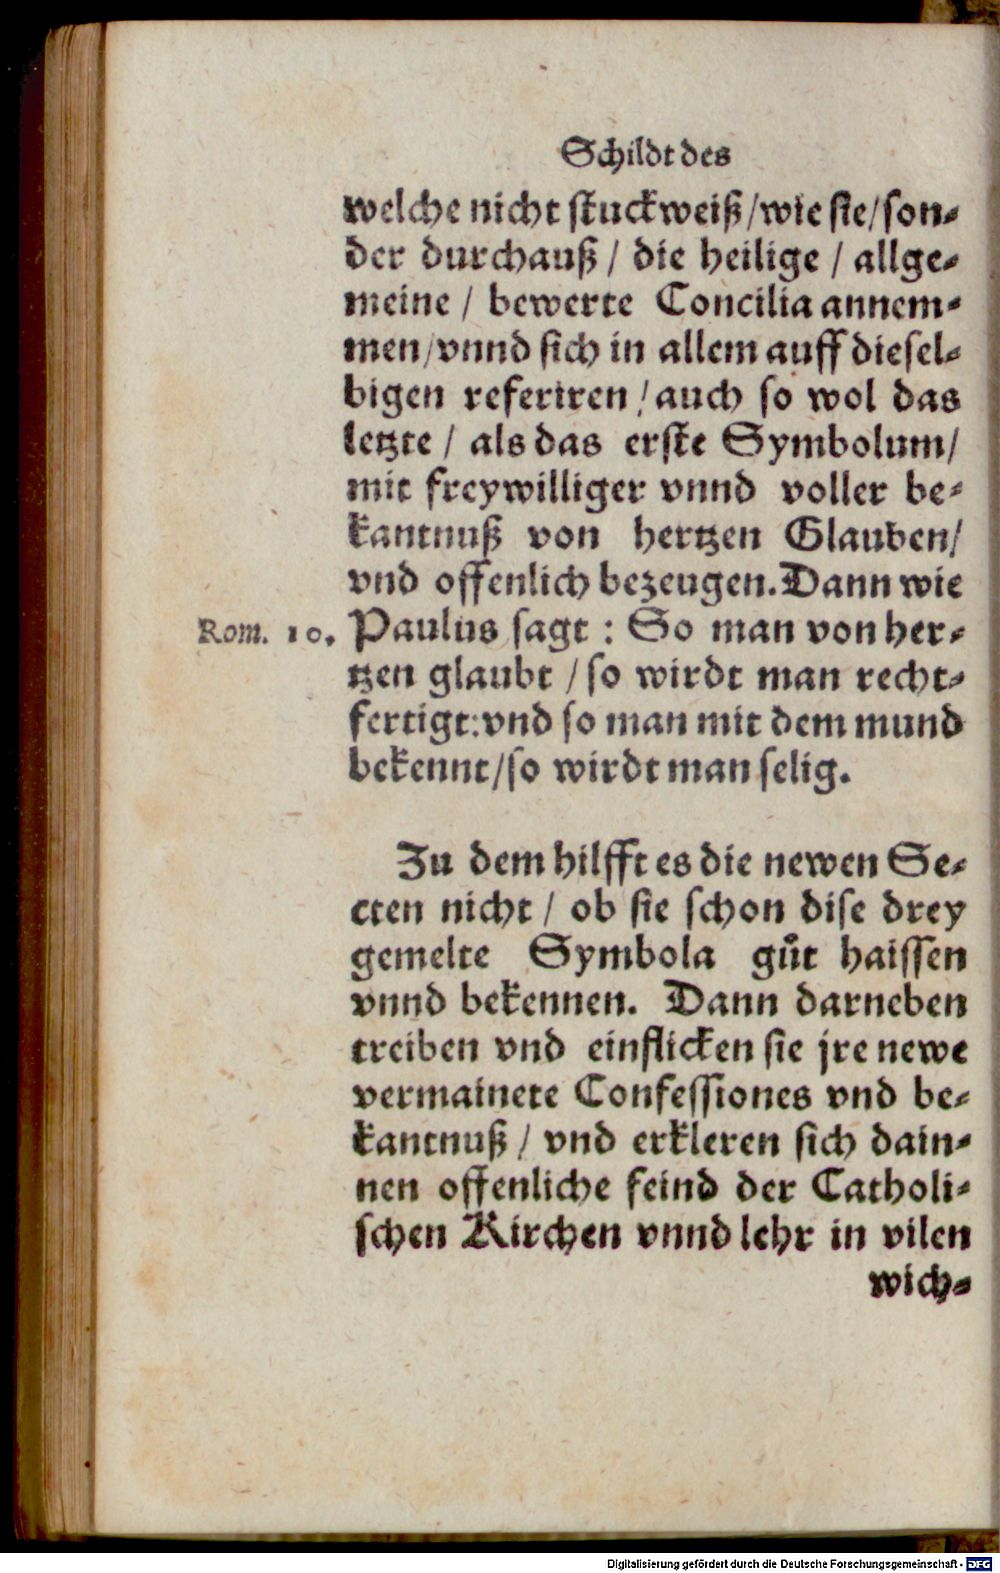 Schildt des
welche nicht stuckweiß/wie sie/son-
der durchauß / die heilige / allge-
meine / bewerte Concilia annem-
men/vnnd sich in allem auff diesel-
bigen referiren / auch so wol das
letzte / als das erste Symbolum/
mit freywilliger vnnd voller be-
kantnuß von hertzen Glauben/
vnd offenlich bezeugen. Dann wie
Rom. 10. Paulus sagt : So man von her-
tzen glaubt / so wirdt man recht-
fertigt: vnd so man mit dem mund
bekennt/so wirdt man selig.
Zu dem hilfft es die newen Se-
cten nicht / ob sie schon dise drey
gemelte Symbola guͦt haissen
vnnd bekennen. Dann darneben
treiben vnd einflicken sie jre newe
vermainete Confessiones vnd be-
kantnuß / vnd erkleren sich dain-
nen offenliche feind der Catholi-
schen Kirchen vnnd lehr in vilen
wich-
Digitalisierung gefördert durch die Deutsche Forschungsgemeinschaft - DFG